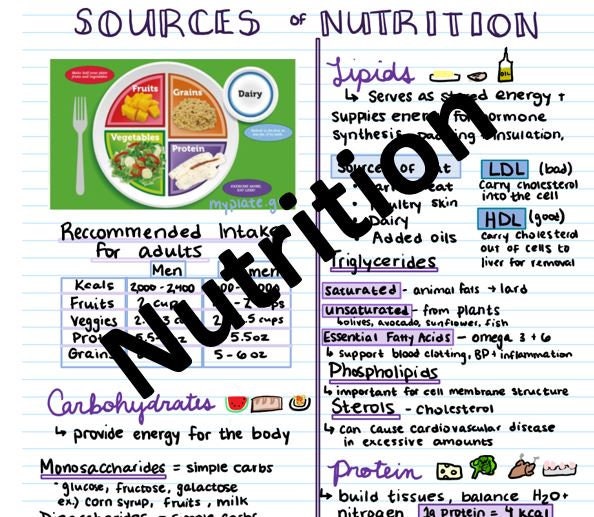 SOURCES OF NUTRITION
Make half your plate fruits and vegetables
Fruits
Grains
Dairy
Vegetables
Protein
myplate.g
Recommended Intake
for adults
Men
men
Kcals 2,000 - 2,400
Fruits 2 cups
Veggies
Prot 5.5oz
Grains 5 - 6 oz
Carbohydrates
↳ provide energy for the body
Monosaccharides = simple carbs
* glucose, fructose, galactose
ex.) corn syrup, fruits, milk
Lipids
OIL
↳ Serves as stored energy +
supplies energy for hormone
synthesis, padding + insulation,
Sources of fat
• Poultry skin
• Dairy
• Added oils
LDL (bad)
Carry cholesterol
into the cell
HDL (good)
carry cholesterol
out of cells to
liver for removal
Triglycerides
saturated - animal fats → lard
unsaturated - from plants
↳ olives, avocado, sunflower, fish
Essential Fatty Acids - omega 3 + 6
↳ support blood clotting, BP + inflammation
Phospholipids
↳ important for cell membrane structure
Sterols - cholesterol
↳ can cause cardiovascular disease
in excessive amounts
Protein
↳ build tissues, balance H2O +
nitrogen 1g protein = 4 kcal
Nutrition